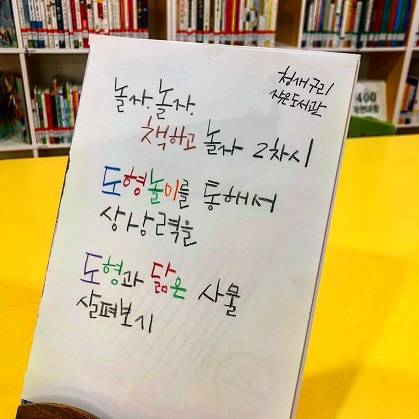 청새구리
작은도서관
놀자. 놀자.
책하고 놀자 2차시
도형놀이를 통해서
상상력을
도형과 닮은 사물
살펴보기
400